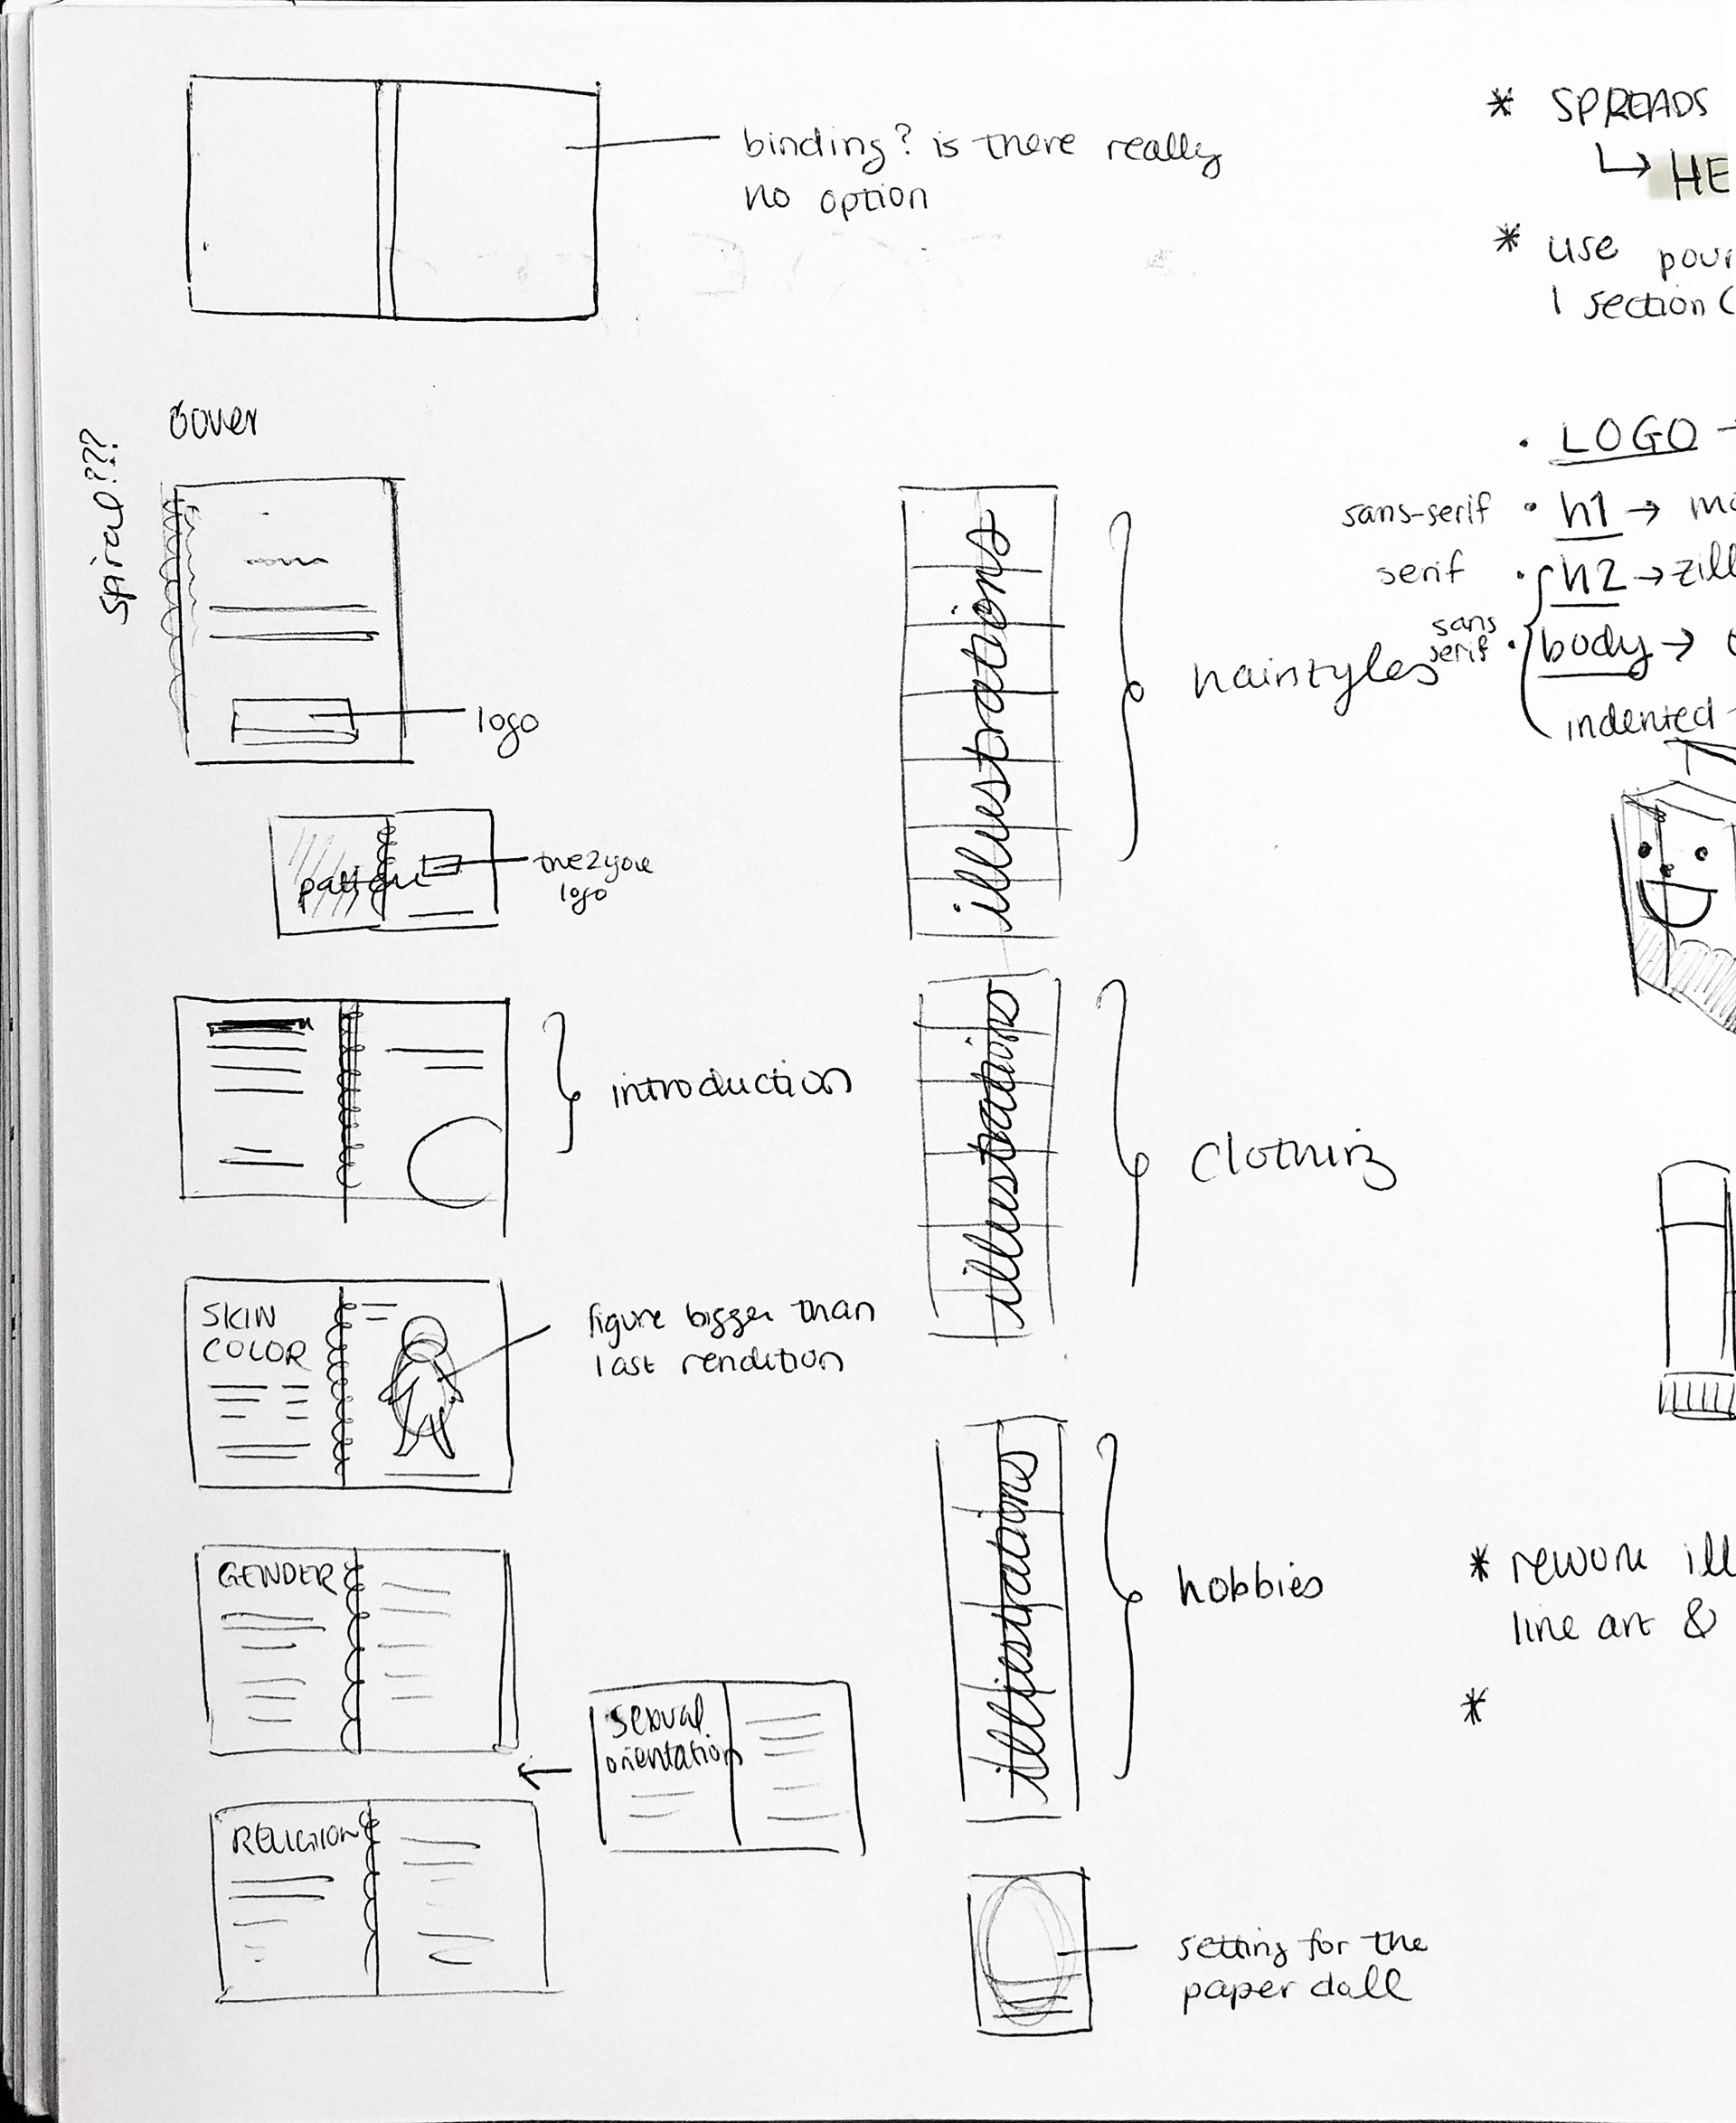 binding? is there really
no option
cover
spiral???
logo
pattern
true2you
logo
introduction
SKIN
COLOR
figure bigger than
last rendition
GENDER
sexual
orientation
RELIGION
illustrations
hairstyles
illustrations
clothing
illustrations
hobbies
setting for the
paper doll
* SPREADS
↳ HE
* use
1 section (
• LOGO
sans-serif • h1 →
serif • h2 → zill
sans
serif • body →
indented
* rework ill
line art &
*